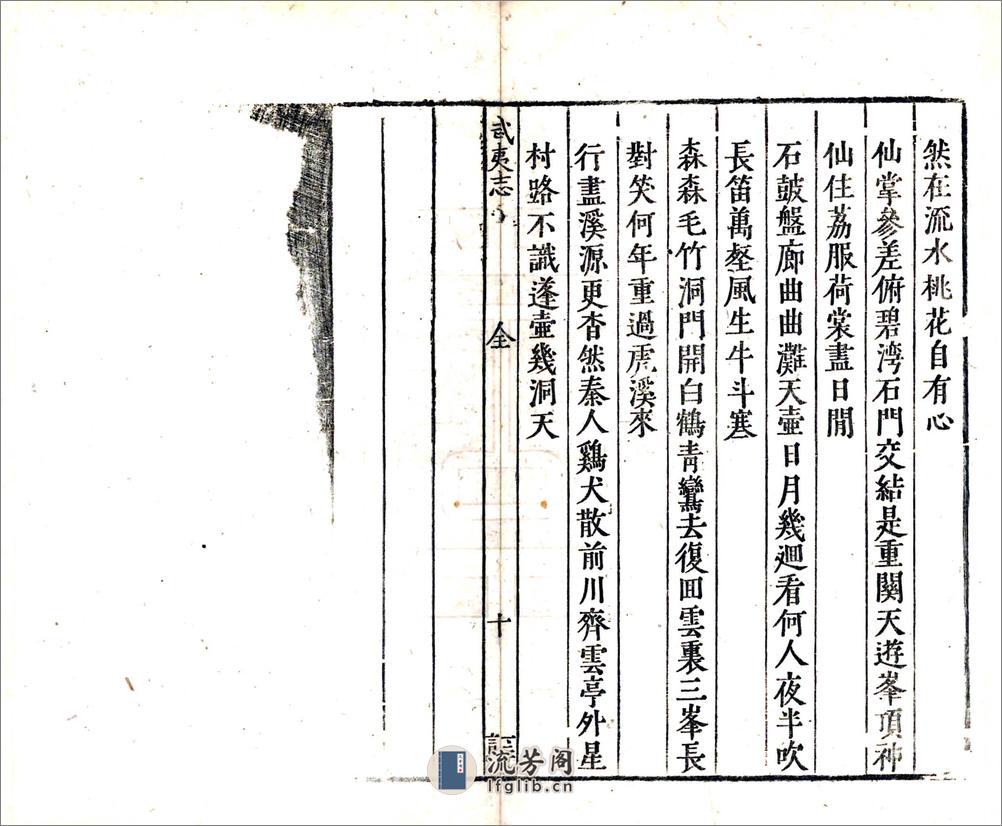 然在流水桃花自有心
仙掌參差俯碧湾石門交結是重関天遊峯頂神
仙住荔服荷裳盡日閒
石皷盤廊曲曲灘天壷日月幾廻看何人夜半吹
長笛萬壑風生牛斗寒
森森毛竹洞門開白鶴青鸞去復囬雲裏三峯長
對笑何年重過虎溪來
行盡溪源更杳然秦人鷄犬散前川齊雲亭外星
村路不識蓬壷幾洞天
武夷志 全 十
流芳阁
lfglib.cn